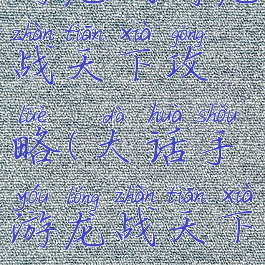 zhàn tiān xià gōng
战天下攻
lüè dà huà shǒu
略(大话手
yóu lóng zhàn tiān xià
游龙战天下